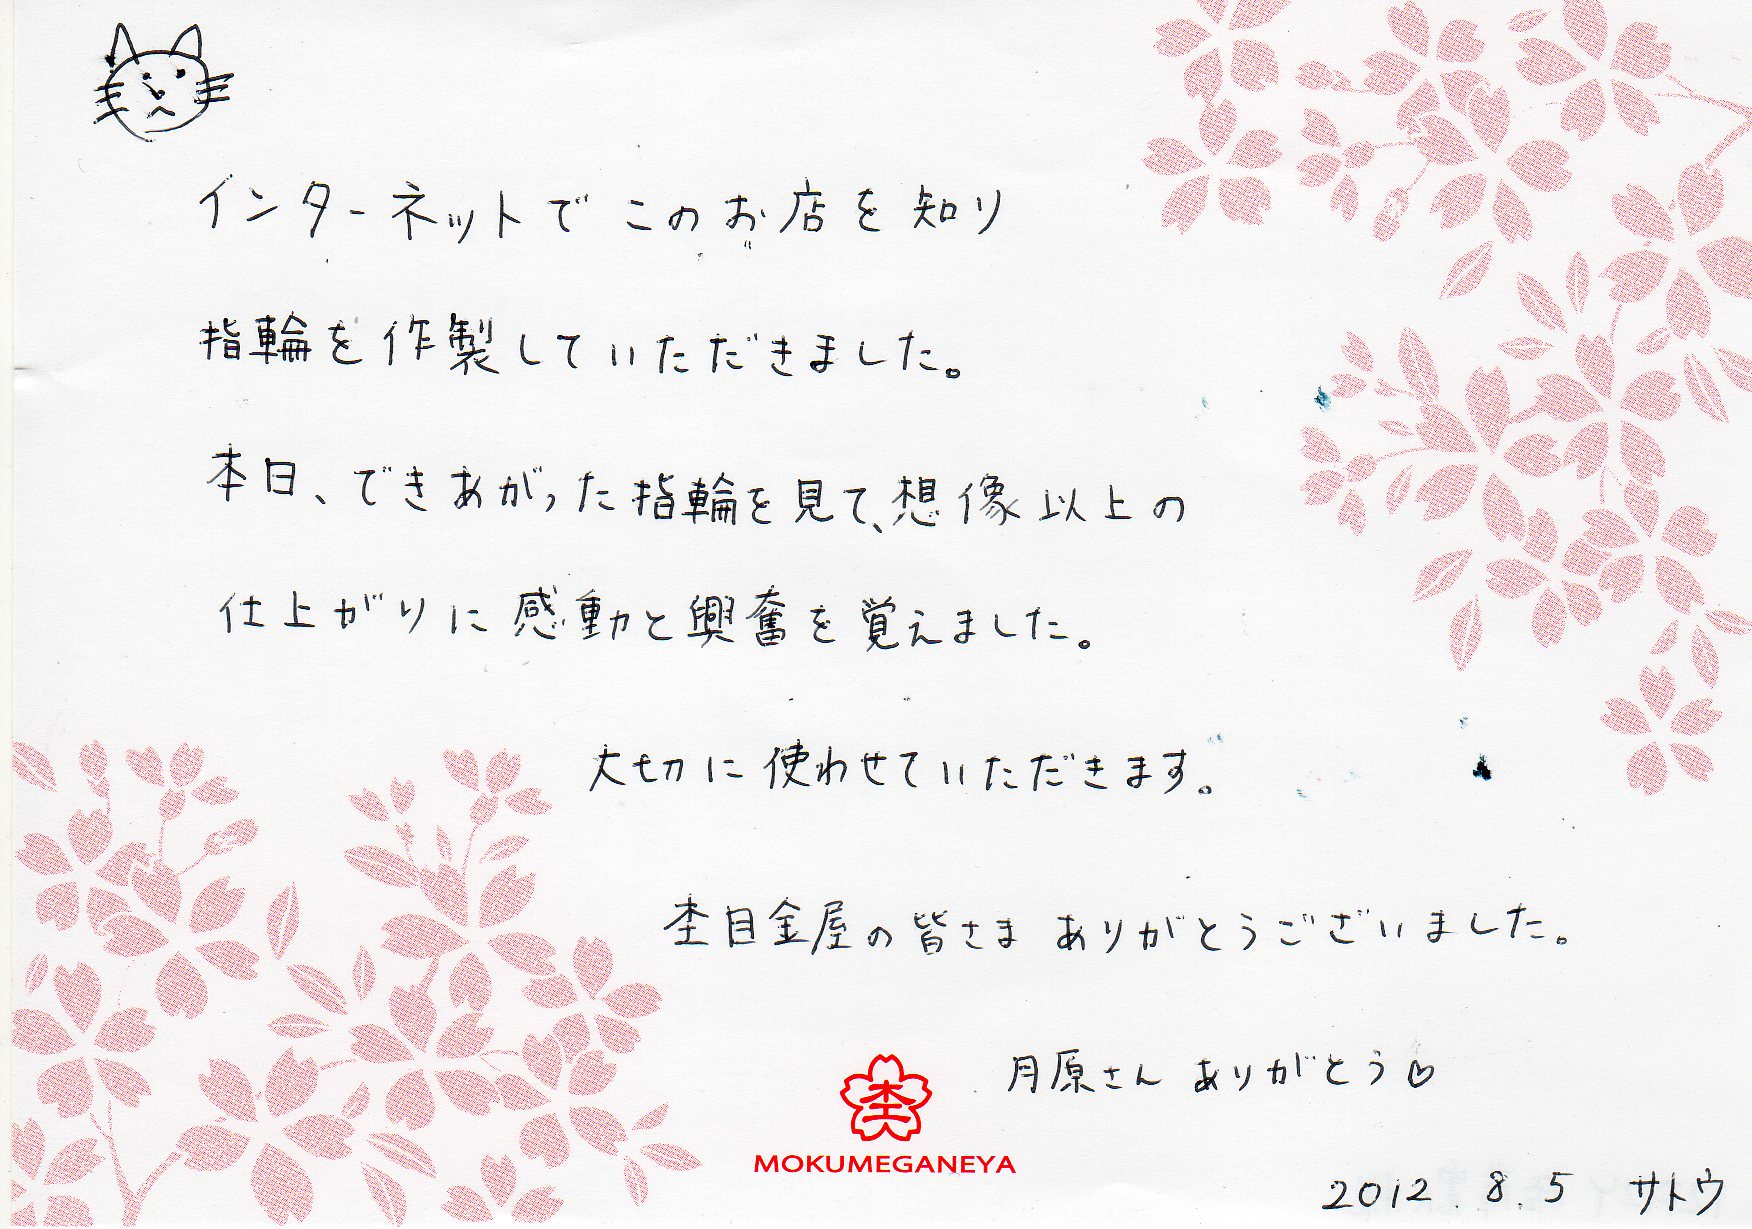 インターネットで このお店を知り
指輪を作製していただきました。
本日、できあがった指輪を見て、想像以上の
仕上がりに感動と興奮を覚えました。
大切に使わせていただきます。
杢目金屋の皆さま ありがとうございました。
月原さん ありがとう♡
杢
MOKUMEGANEYA
2012.8.5 サトウ